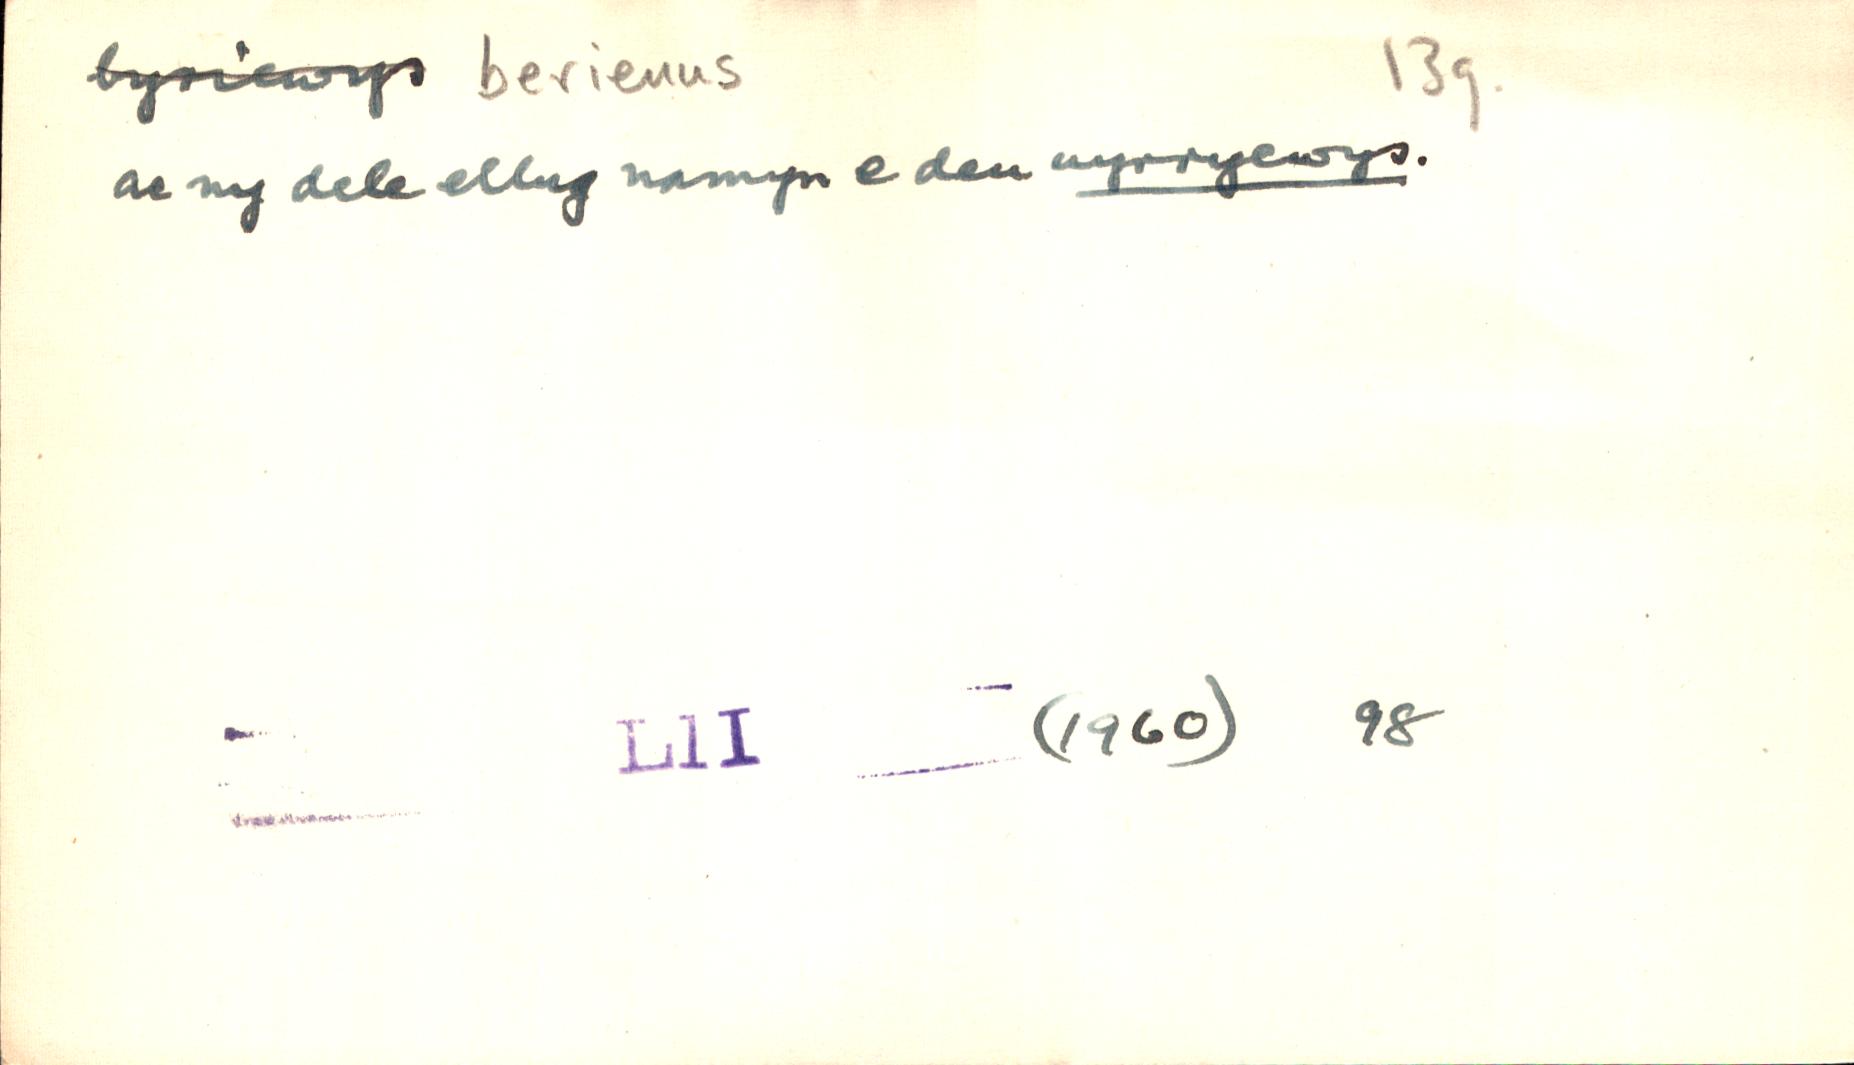 ~~byriewys~~ berienus 13g.
ac ny dele ellug namyn e deu uyrryewys.
LlI (1960) 98